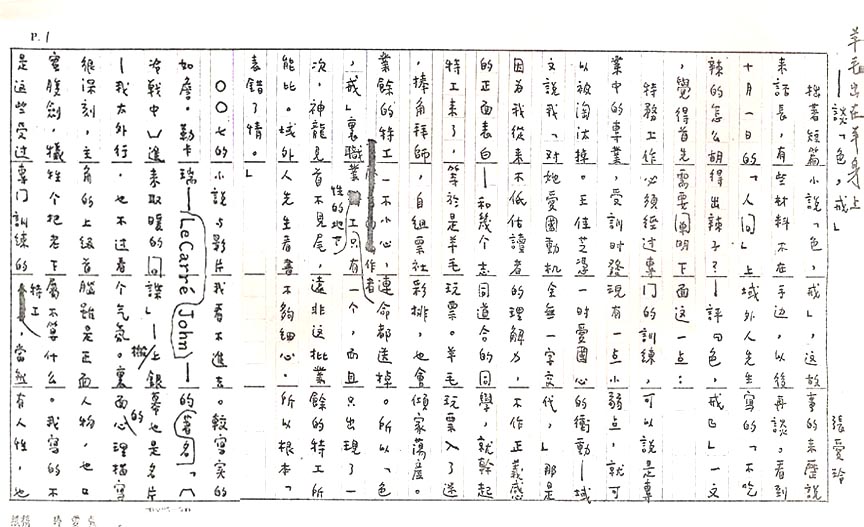 P. 1
羊毛出在羊身上
——談「色,戒」
張愛玲
拙著短篇小說「色,戒」,這故事的來歷說
來話長,有些材料不在手边,以後再談。看到
十月一日的「人间」上域外人先生寫的「不吃
辣的怎么胡得出辣子?——評『色,戒』」一文
,覺得首先需要阐明下面這一点:
特務工作必須經过專门的訓練,可以說是專
業中的專業,受訓时發現有一点小弱点,就可
以被淘汰掉。王佳芝憑一时愛國心的衝動——域
文說我「对她愛國動机全無一字交代,」那是
因為我從來不低估讀者的理解力,不作正義感
的正面表白——和幾个志同道合的同學,就幹起
特工來了,等於是羊毛玩票。羊毛玩票入了迷
,捧角拜師,自組票社彩排,也會傾家蕩產。
業餘的特工一不小心,連命都送掉。所以「色
,戒」裏職業性的地下工作者只有一个,而且只出現了一
次,神龍見首不見尾,遠非這批業餘的特工所
能比。域外人先生看書不夠細心,所以根本「
表錯了情。」
〇〇七的小說与影片我看不進去。較寫实的
如詹·勒卡瑞——LeCarré (John)——的著名「〈
冷戰中〉進來取暖的间諜」——搬上銀幕也是名片
——我太外行,也不过看个气氛。裏面的心理描寫
很深刻,主角的上級首脑雖是正面人物,也口
蜜腹劍,犧牲个把老下屬不算什么。我寫的不
是這些受过專门訓練的特工,當然有人性,也